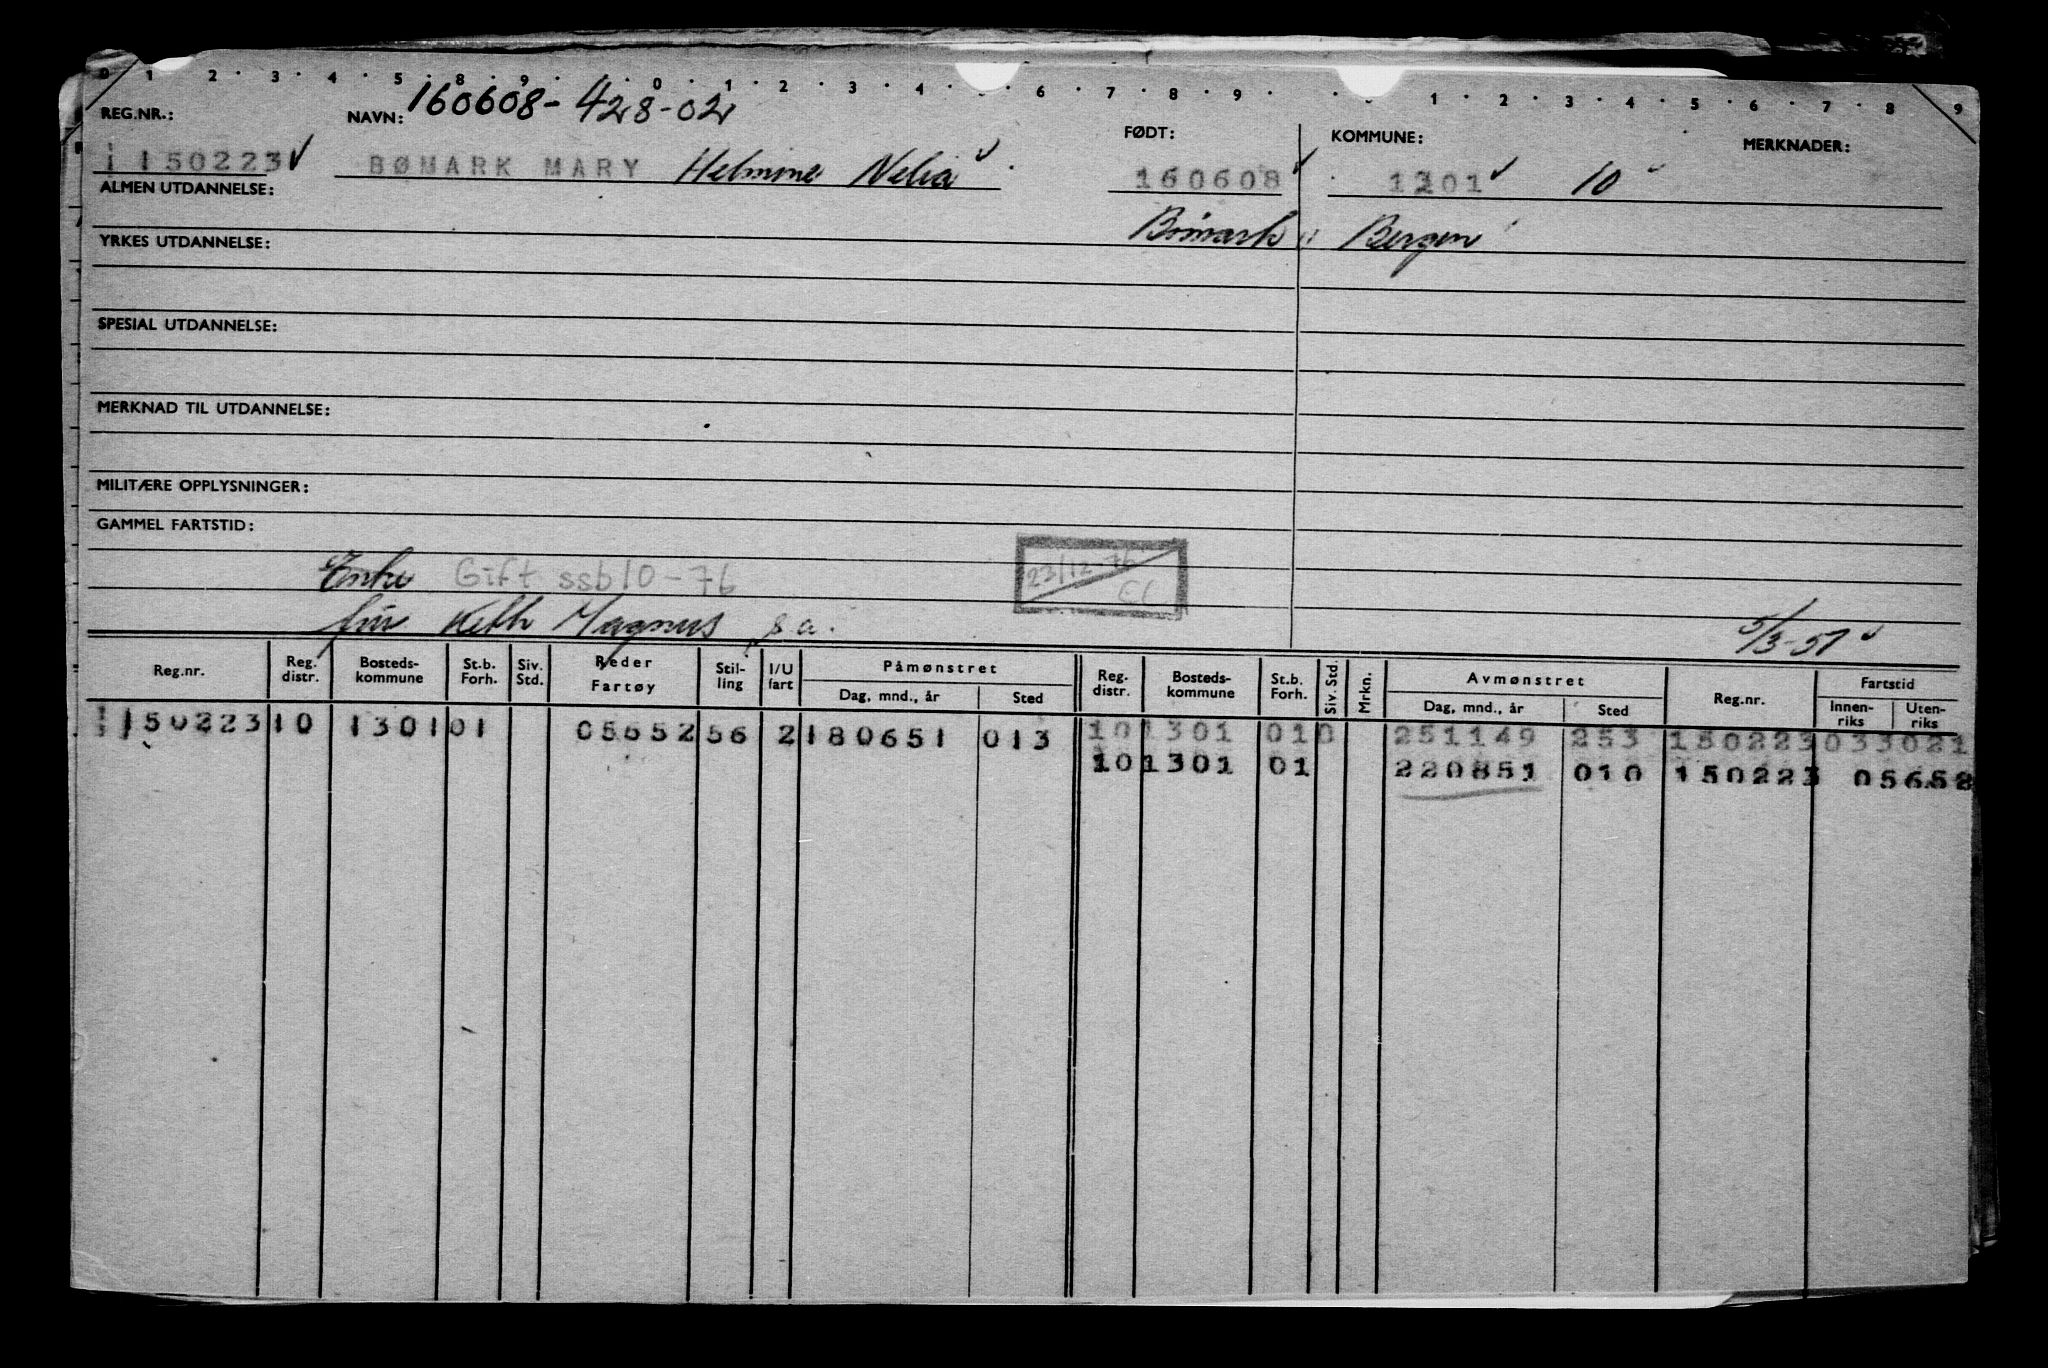 0 1 2 3 4 5 8 9 0 1 2 3 4 6 7 8 9 1 2 3 4 5 6 7 8 9
160608-428-02
REG.NR.: NAVN: FØDT: KOMMUNE: MERKNADER:
1150223 BØMARK MARY Helmine 160608 1201 10
ALMEN UTDANNELSE:
Bergen
YRKES UTDANNELSE:
SPESIAL UTDANNELSE:
MERKNAD TIL UTDANNELSE:
MILITÆRE OPPLYSNINGER:
GAMMEL FARTSTID:
Enke Gift ssb10-76 23/12-76
Magnus s.a. 5/3-51
Reg.nr. Reg. distr. Bosteds-kommune St.b. Forh. Siv. Std. Reder Fartøy Stil-ling I/U fart Påmønstret Dag, mnd., år Sted Reg. distr. Bosteds-kommune St.b. Forh. Siv. Std. Mrkn. Avmønstret Dag, mnd., år Sted Reg.nr. Fartstid Innen-riks Uten-riks
1150223 10 1301 01 05652 56 2 180651 013 10 1301 01 0 251149 253 150223 033021
10 1301 01 220851 010 150223 05652